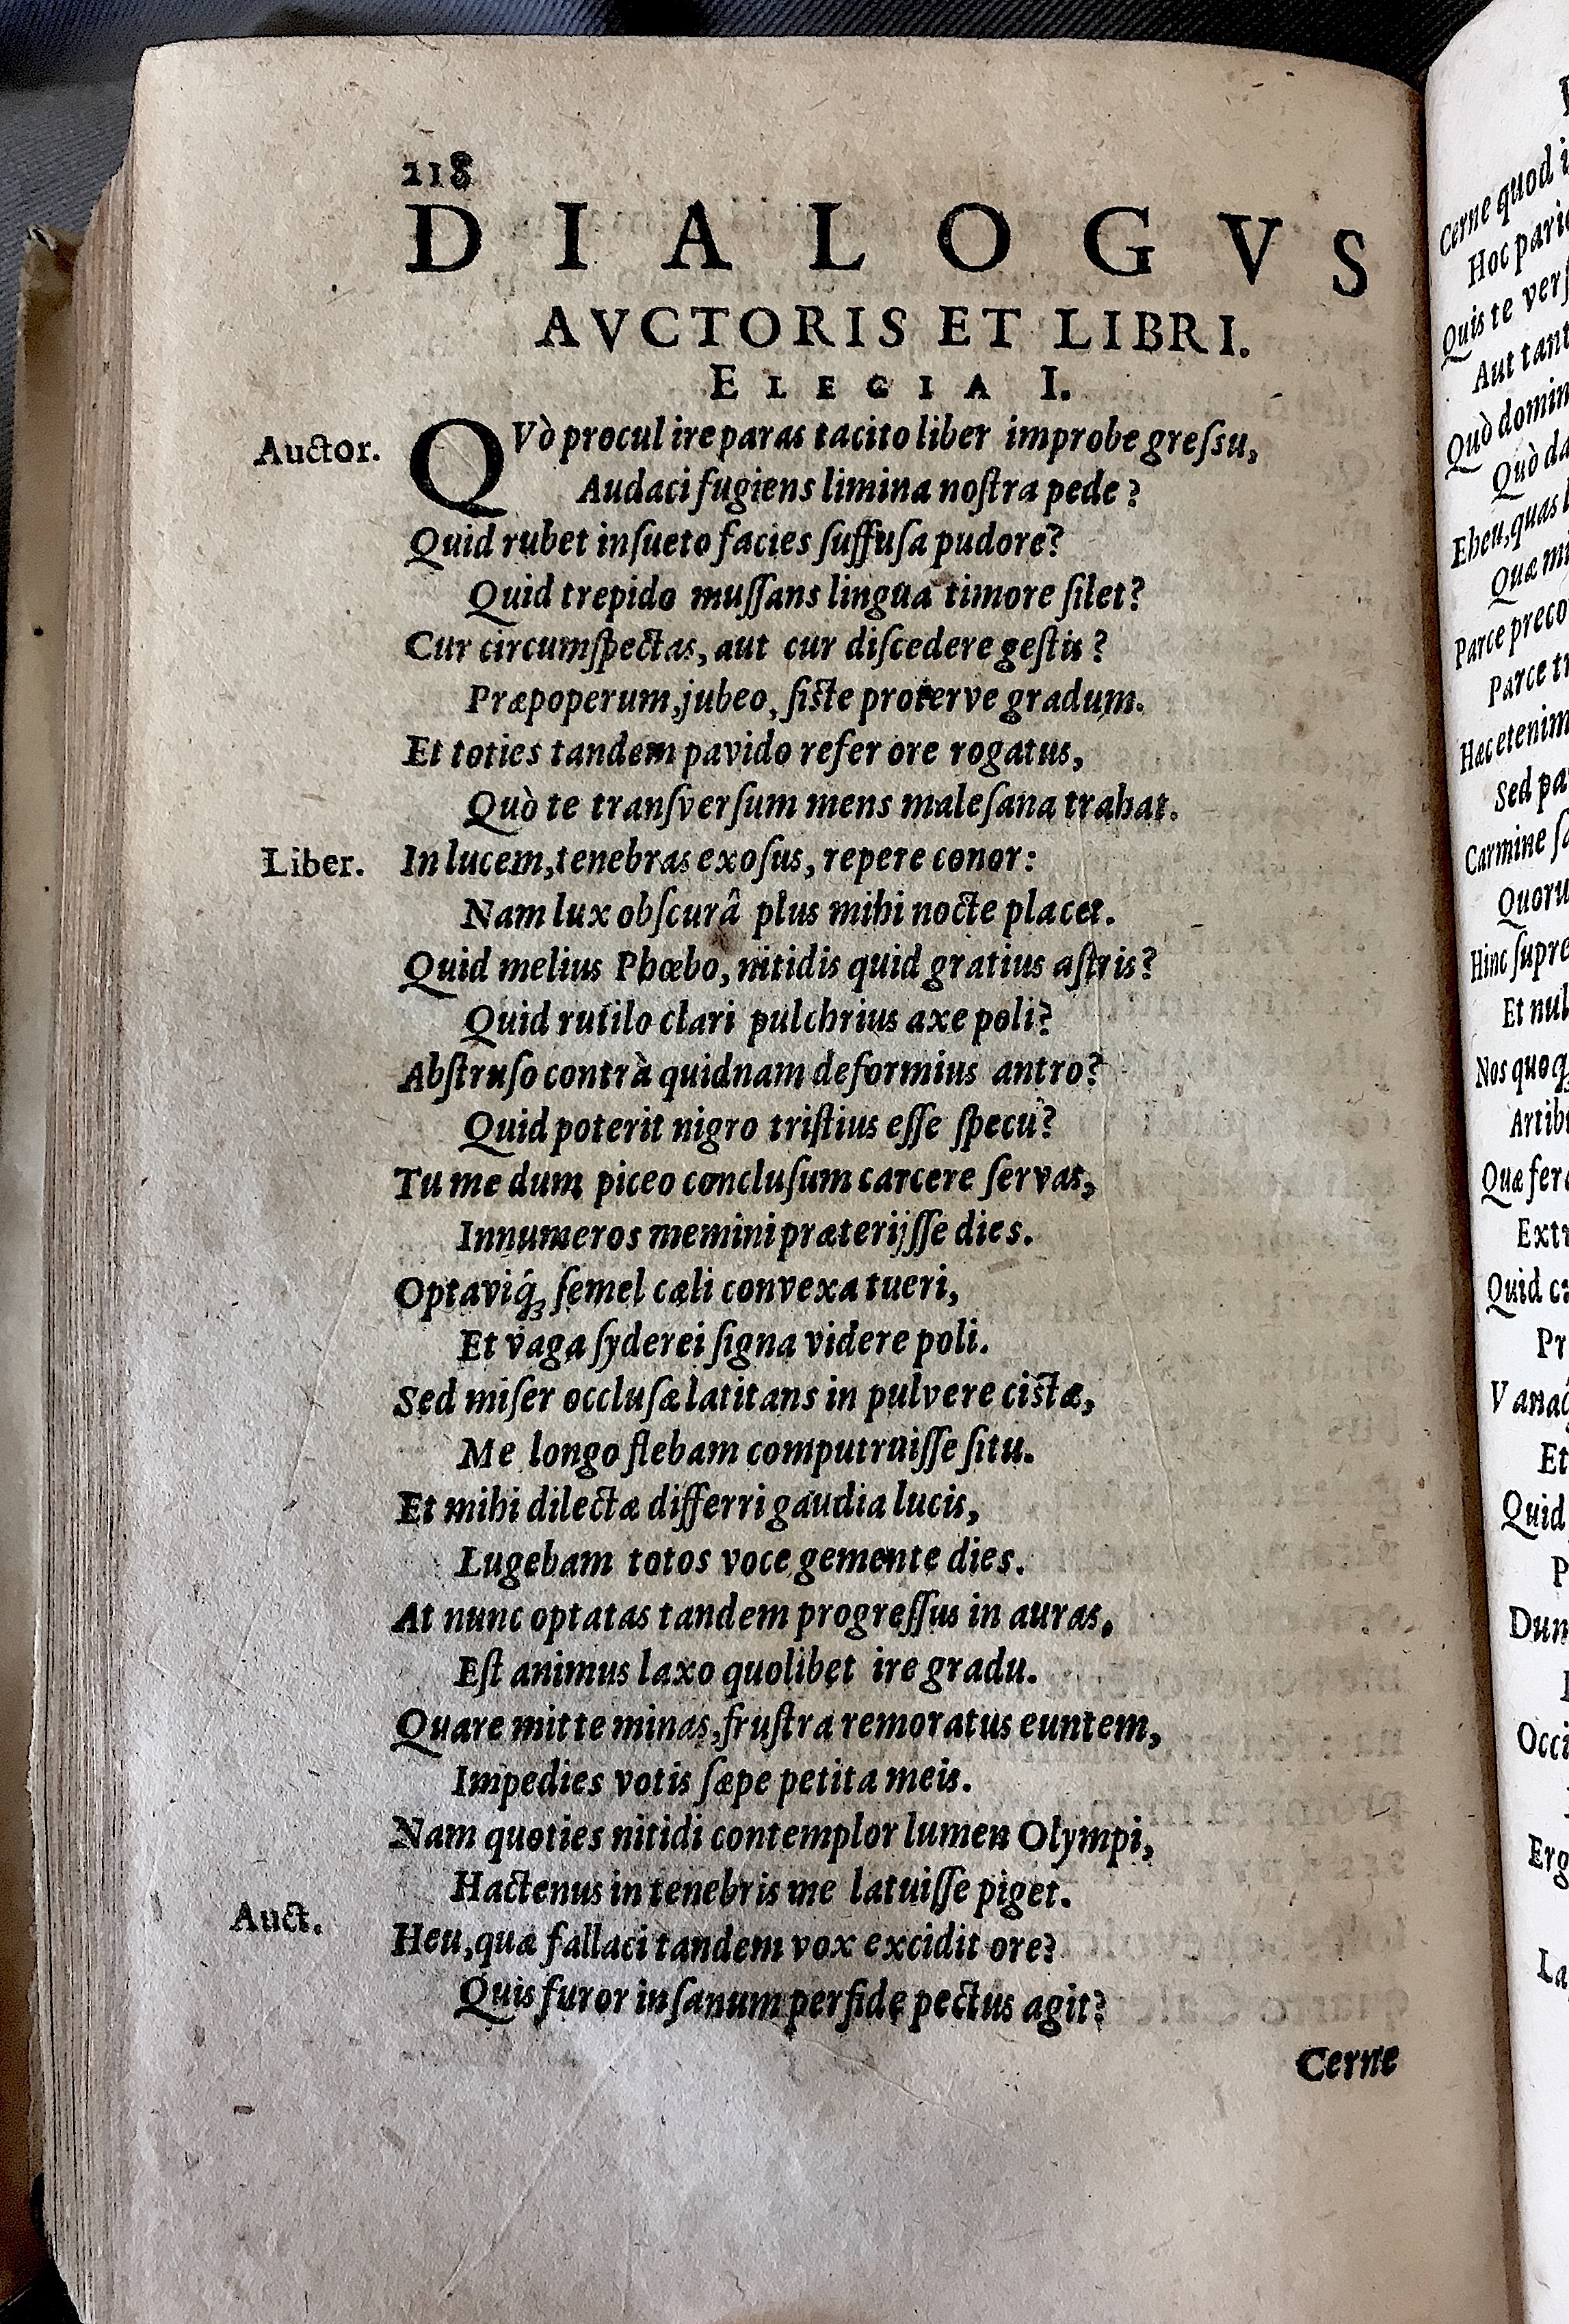 218
DIALOGVS
AVCTORIS ET LIBRI.
ELEGIA I.
Auctor. QVò procul ire paras tacito liber improbe greſsu,
Audaci fugiens limina noſtra pede?
Quid rubet inſueto facies ſuffuſa pudore?
Quid trepido muſſans lingua timore ſilet?
Cur circumſpectas, aut cur diſcedere geſtis?
Præpoperum, jubeo, ſiſte proterve gradum.
Et toties tandem pavido refer ore rogatus,
Quò te tranſverſum mens maleſana trahat.
Liber. In lucem, tenebras exoſus, repere conor:
Nam lux obſcurâ plus mihi nocte placet.
Quid melius Phœbo, nitidis quid gratius aſtris?
Quid rutilo clari pulchrius axe poli?
Abſtruſo contrà quidnam deformius antro?
Quid poterit nigro triſtius eſſe ſpecu?
Tu me dum piceo concluſum carcere ſervas,
Innumeros memini præterijſſe dies.
Optaviq́ꝫ ſemel cæli convexa tueri,
Et vaga ſyderei ſigna videre poli.
Sed miſer occluſæ latitans in pulvere ciſtæ,
Me longo flebam computruiſſe ſitu.
Et mihi dilectæ differri gaudia lucis,
Lugebam totos voce gemente dies.
At nunc optatas tandem progreſſus in auras,
Eſt animus laxo quolibet ire gradu.
Quare mitte minas, fruſtra remoratus euntem,
Impedies votis ſæpe petita meis.
Nam quoties nitidi contemplor lumen Olympi,
Hactenus in tenebris me latuiſſe piget.
Auct. Heu, quæ fallaci tandem vox excidit ore?
Quis furor inſanum perfide pectus agit?
Cerne
Cerne quod
Hoc
Quis te
Aut
Quò
Quò
Eheu, quas
Quæ
Parce
Parce
Hæc etenim
Sed
Carmine
Hinc
Et
Nos
Quæ
Quid
Et
Quid